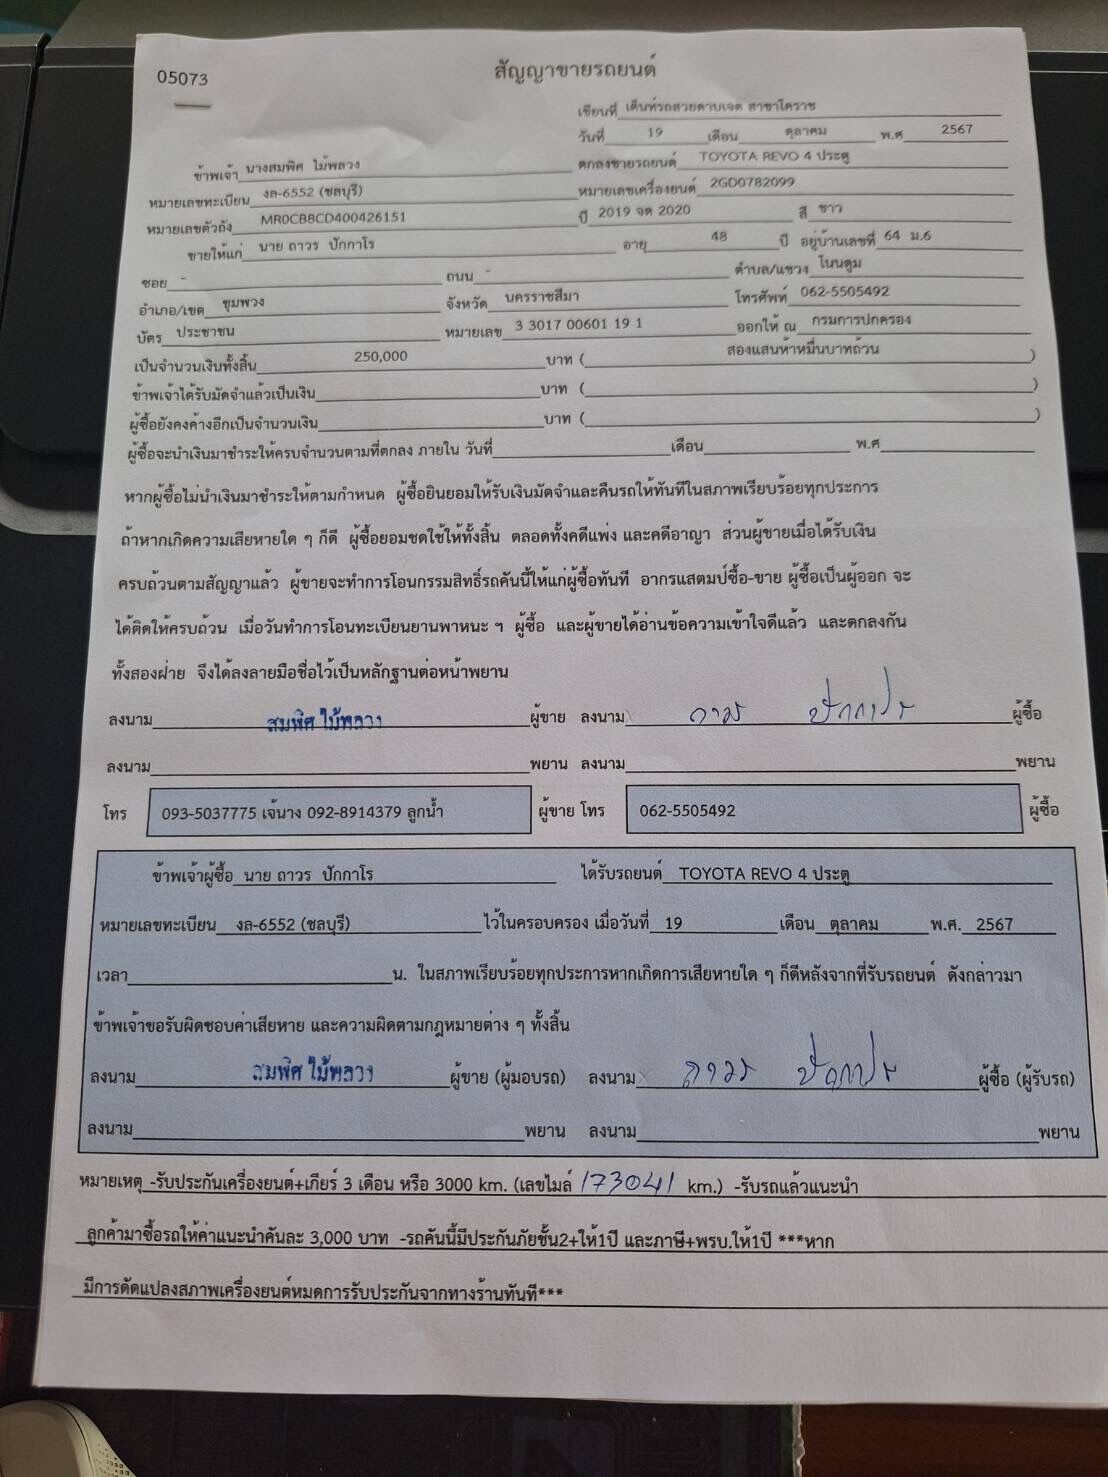 05073
สัญญาขายรถยนต์
เขียนที่ เต็นท์รถสวยดาบเจต สาขาโคราช
วันที่ 19 เดือน ตุลาคม พ.ศ 2567
ข้าพเจ้า นางสมพิศ ไม้พลวง ตกลงขายรถยนต์ TOYOTA REVO 4 ประตู
หมายเลขทะเบียน งล-6552 (ชลบุรี) หมายเลขเครื่องยนต์ 2GD0782099
หมายเลขตัวถัง MR0CB8CD400426151 ปี 2019 จด 2020 สี ขาว
ขายให้แก่ นาย ถาวร ปักกาโร อายุ 48 ปี อยู่บ้านเลขที่ 64 ม.6
ซอย - ถนน - ตำบล/แขวง โนนตูม
อำเภอ/เขต ชุมพวง จังหวัด นครราชสีมา โทรศัพท์ 062-5505492
บัตร ประชาชน หมายเลข 3 3017 00601 19 1 ออกให้ ณ กรมการปกครอง
เป็นจำนวนเงินทั้งสิ้น 250,000 บาท ( สองแสนห้าหมื่นบาทถ้วน )
ข้าพเจ้าได้รับมัดจำแล้วเป็นเงิน บาท ( )
ผู้ซื้อยังคงค้างอีกเป็นจำนวนเงิน บาท ( )
ผู้ซื้อจะนำเงินมาชำระให้ครบจำนวนตามที่ตกลง ภายใน วันที่ เดือน พ.ศ
หากผู้ซื้อไม่นำเงินมาชำระให้ตามกำหนด ผู้ซื้อยินยอมให้รับเงินมัดจำและคืนรถให้ทันทีในสภาพเรียบร้อยทุกประการ
ถ้าหากเกิดความเสียหายใด ๆ ก็ดี ผู้ซื้อยอมชดใช้ให้ทั้งสิ้น ตลอดทั้งคดีแพ่ง และคดีอาญา ส่วนผู้ขายเมื่อได้รับเงิน
ครบถ้วนตามสัญญาแล้ว ผู้ขายจะทำการโอนกรรมสิทธิ์รถคันนี้ให้แก่ผู้ซื้อทันที อากรแสตมป์ซื้อ-ขาย ผู้ซื้อเป็นผู้ออก จะ
ได้ติดให้ครบถ้วน เมื่อวันทำการโอนทะเบียนยานพาหนะ ฯ ผู้ซื้อ และผู้ขายได้อ่านข้อความเข้าใจดีแล้ว และตกลงกัน
ทั้งสองฝ่าย จึงได้ลงลายมือชื่อไว้เป็นหลักฐานต่อหน้าพยาน
ลงนาม สมพิศ ไม้พลวง ผู้ขาย ลงนาม ถาวร ปักกาโร ผู้ซื้อ
ลงนาม พยาน ลงนาม พยาน
โทร 093-5037775 เจ้นาง 092-8914379 ลูกน้ำ ผู้ขาย โทร 062-5505492 ผู้ซื้อ
ข้าพเจ้าผู้ซื้อ นาย ถาวร ปักกาโร ได้รับรถยนต์ TOYOTA REVO 4 ประตู
หมายเลขทะเบียน งล-6552 (ชลบุรี) ไว้ในครอบครอง เมื่อวันที่ 19 เดือน ตุลาคม พ.ศ. 2567
เวลา น. ในสภาพเรียบร้อยทุกประการหากเกิดการเสียหายใด ๆ ก็ดีหลังจากที่รับรถยนต์ ดังกล่าวมา
ข้าพเจ้าขอรับผิดชอบค่าเสียหาย และความผิดตามกฎหมายต่าง ๆ ทั้งสิ้น
ลงนาม สมพิศ ไม้พลวง ผู้ขาย (ผู้มอบรถ) ลงนาม ถาวร ปักกาโร ผู้ซื้อ (ผู้รับรถ)
ลงนาม พยาน ลงนาม พยาน
หมายเหตุ -รับประกันเครื่องยนต์+เกียร์ 3 เดือน หรือ 3000 km. (เลขไมล์ 173041 km.) -รับรถแล้วแนะนำ
ลูกค้ามาซื้อรถให้ค่าแนะนำคันละ 3,000 บาท -รถคันนี้มีประกันภัยชั้น2+ให้1ปี และภาษี+พรบ.ให้1ปี ***หาก
มีการดัดแปลงสภาพเครื่องยนต์หมดการรับประกันจากทางร้านทันที***